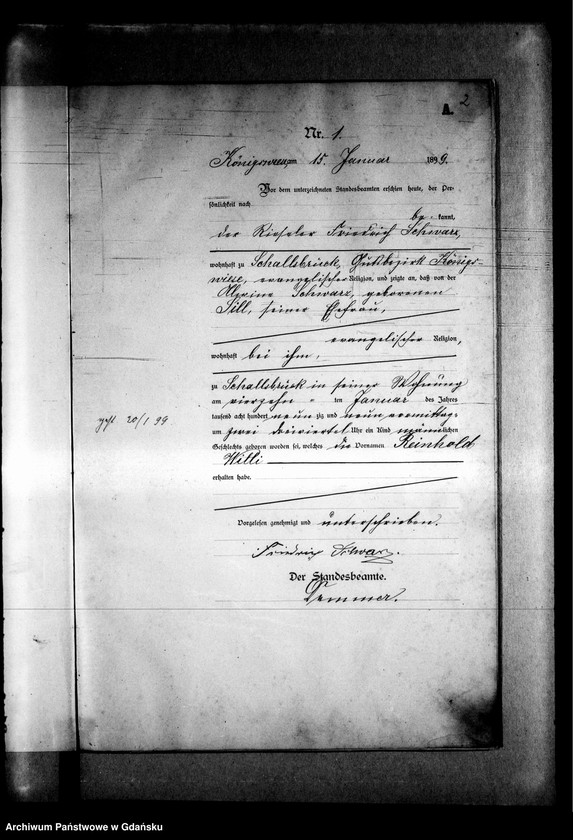 A. 2
Nr. 1.
Königswiese, am 15. Januar 1899.
Vor dem unterzeichneten Standesbeamten erschien heute, der Per-
sönlichkeit nach
be kannt,
der Rieseler Friedrich Schwarz,
wohnhaft zu Schallsbrück, Gutsbezirk Königs-
wiese, evangelischer Religion, und zeigte an, daß von der
Schwarz, geborenen
Sill, seiner Ehefrau,
evangelischer Religion,
wohnhaft bei ihm,
zu Schallsbrück in seiner Wohnung
am vierzehn ten Januar des Jahres
tausend acht hundert neun zig und neun vormittags
um zwei dreiviertel Uhr ein Kind männlichen
Geschlechts geboren worden sei, welches die Vornamen Reinhold
Willi
erhalten habe.
20/1 99
Vorgelesen, genehmigt und unterschrieben.
Friedrich Schwarz.
Der Standesbeamte.
Archiwum Państwowe w Gdańsku